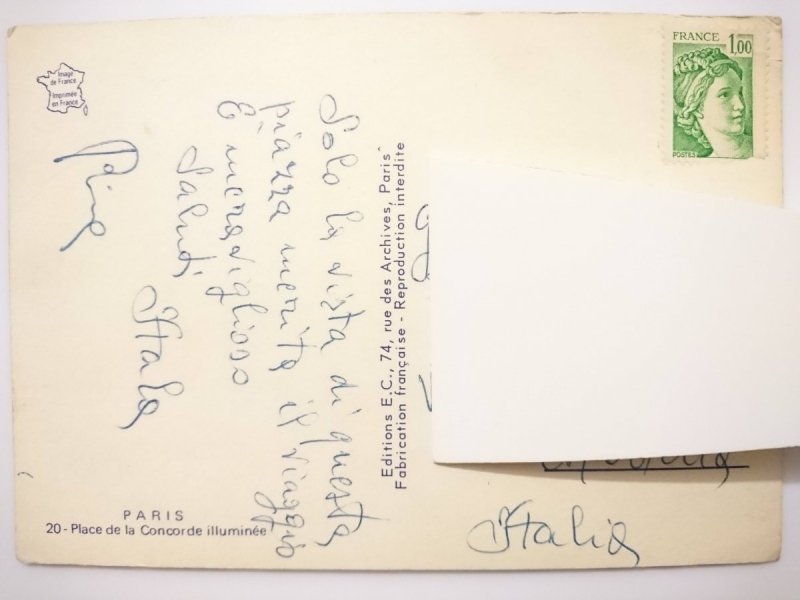 Image
de France
Imprimée
en France
FRANCE
1,00
POSTES
Solo la vista di questa
piazza merita il viaggio
E meraviglioso
Saluti
Itala
Pina
Editions E.C., 74, rue des Archives, Paris
Fabrication française - Reproduction interdite
Italia
PARIS
20 - Place de la Concorde illuminée